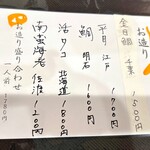 お造り
金目鯛 千葉 1500円
平目 江戸 1700円
鯛 明石 1600円
活タコ 北海道 1800円
南蛮海老 佐渡 1200円
お造り盛り合わせ
一人前 1780円